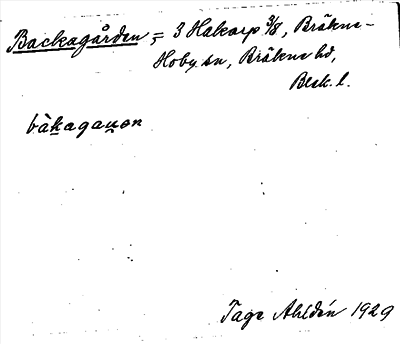 Backagården = 3 Hakarp 3/8, Bräkne-
Hoby sn, Bräkne hd,
Blek. l.
bàkagaṵən
Tage Ahldén 1929